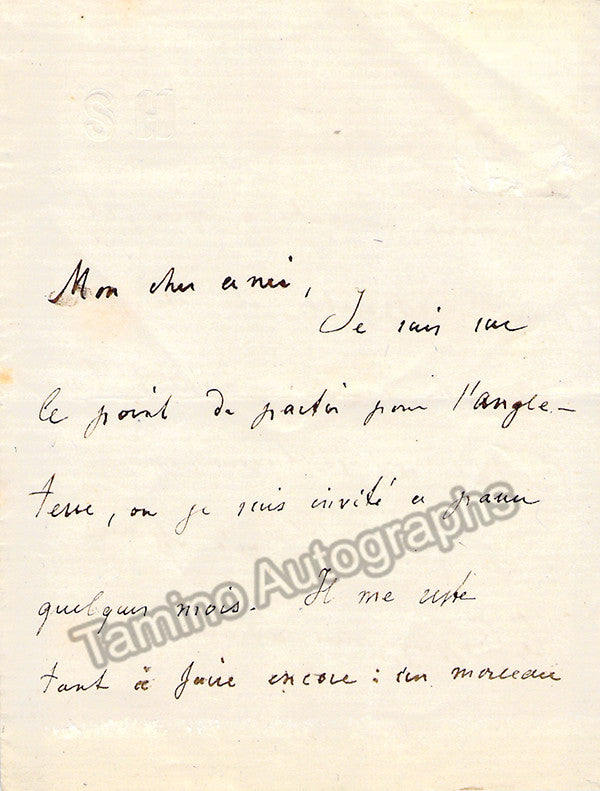 S H
Mon cher ami,
Je suis sur
le point de partir pour l'angle-
terre, ou je suis invité a passer
quelques mois. Il me reste
tant à faire encore : un morceau
Tamino Autographs